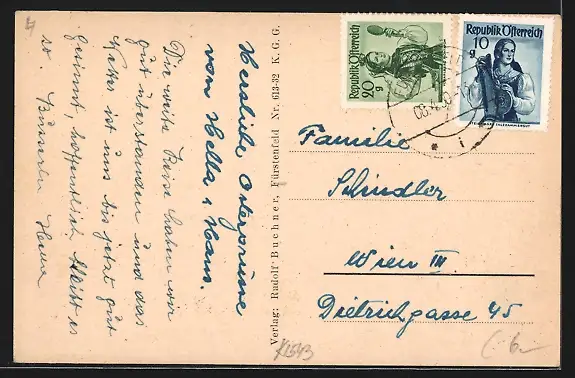 Herzliche Ostergrüsse
von Hella & Hans.
Die weite Reise haben wir
gut überstanden und das
Wetter ist uns bis jetzt gut
gesinnt, hoffentlich bleibt es
so. Busserln Hans
Verlag: Rudolf Buchner, Fürstenfeld Nr. 613-32 K. G. G.
Republik Österreich
20
g
Republik Österreich
10
g
Familie
Schindler
Wien III
Dietrichgasse 45
K2543
6.-